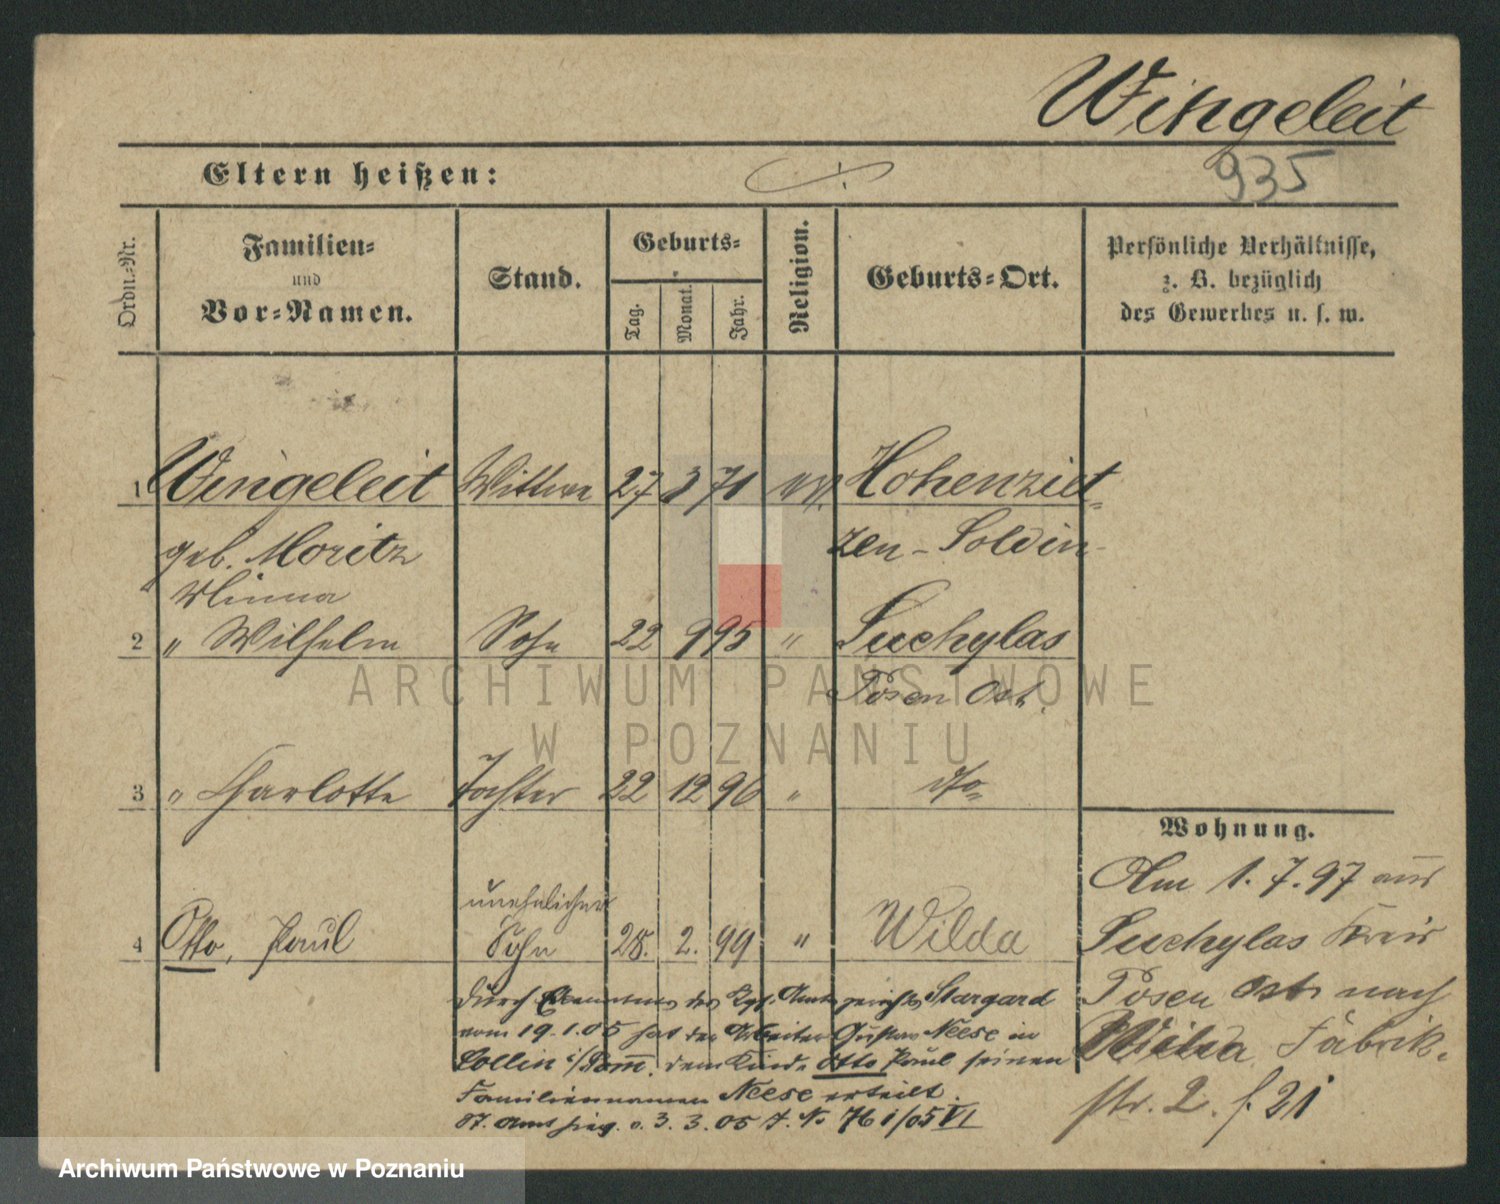 Wingeleit
935
Eltern heißen:
Ordn.-Nr.
Familien-
und
Vor-Namen.
Stand.
Geburts-
Tag.
Monat.
Jahr.
Religion.
Geburts-Ort.
Persönliche Verhältnisse,
z. B. bezüglich
des Gewerbes u. s. w.
1 Wingeleit Wittwe 27 3 71 ev. Hohenziet-
geb. Moritz zen - Soldin
Minna
2 " Wilhelm Sohn 22 9 95 " Suchylas
Posen Ost.
3 " Charlotte Tochter 22 12 96 " dto
unehelicher
4 Otto, Paul Sohn 28. 2. 99 " Wilda
Durch des Kgl. Amtsgerichts Stargard
vom 19.1.05 hat der Arbeiter Gustav Neese in
Collin i/Pom. dem Kinde Otto Paul seinen
Familiennamen Neese erteilt.
St. Amt v. 3.3.05 J. No 761/05 VI
Wohnung.
Am 1.7.97 aus
Suchylas Kreis
Posen Ost nach
Wilda Fabrik-
str. 2. f. 21
ARCHIWUM PAŃSTWOWE
W POZNANIU
Archiwum Państwowe w Poznaniu